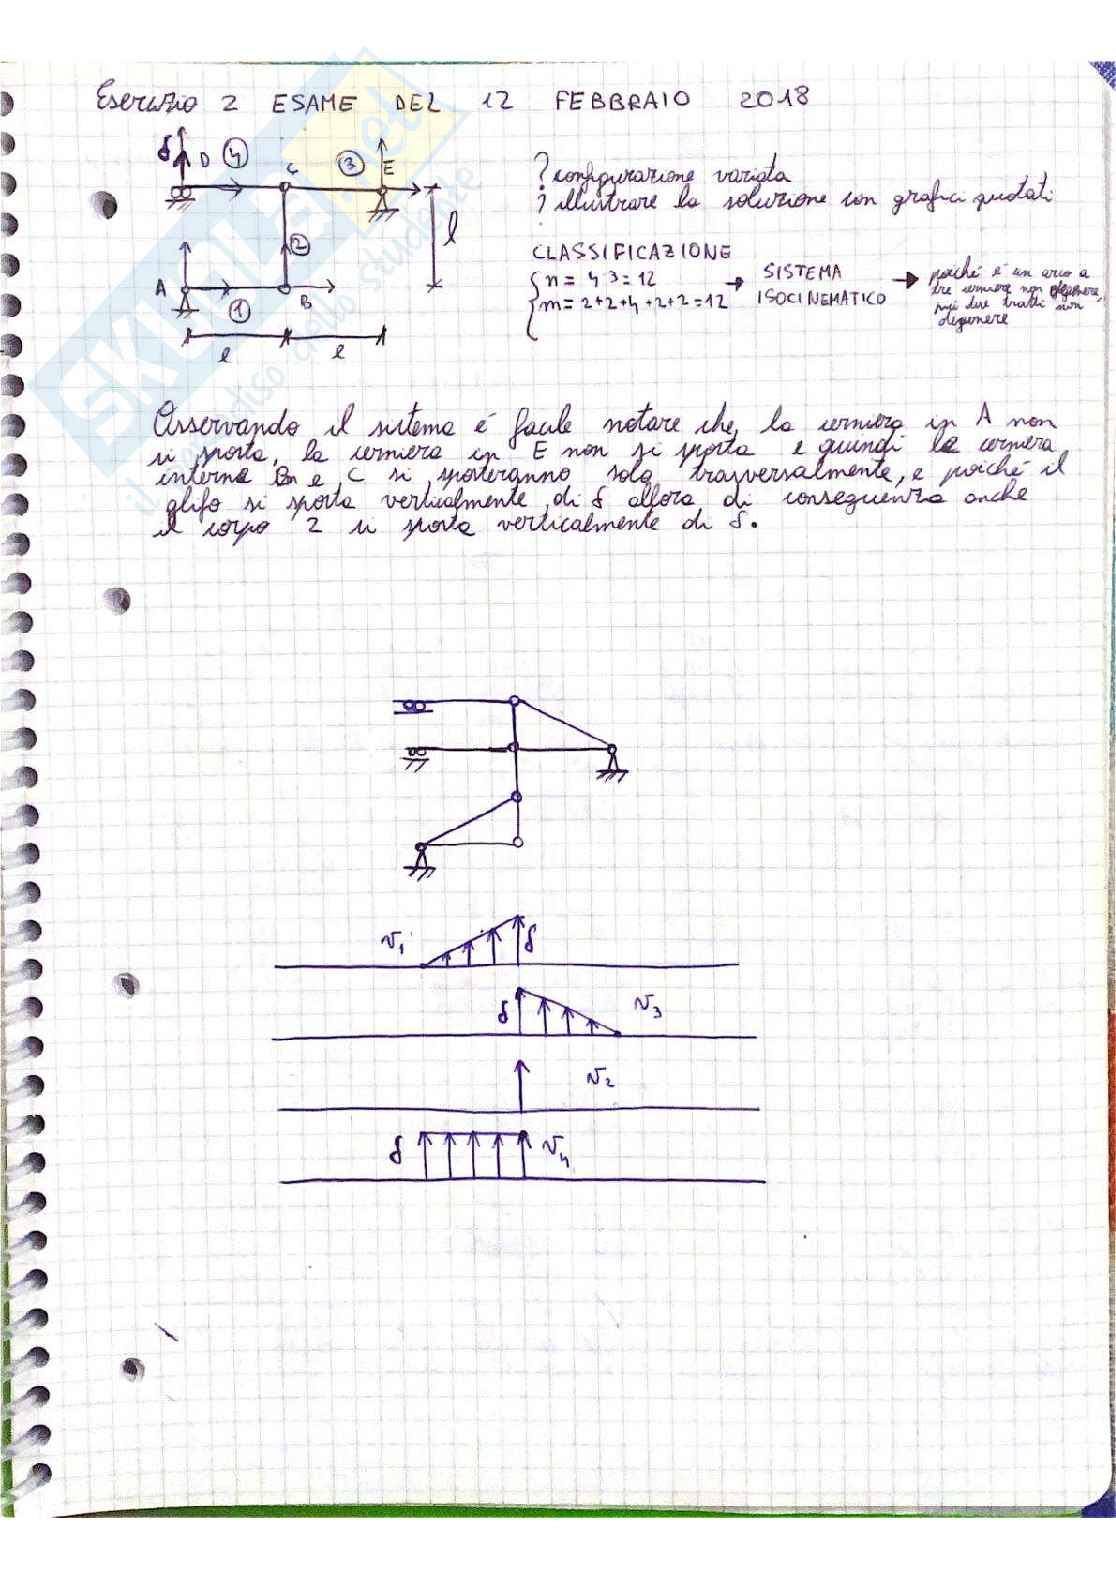 Esercizio 2 ESAME DEL 12 FEBBRAIO 2018
δ D 4 C 3 E
? configurazione variata
? illustrare la soluzione con grafici quotati
2 l
A 1 B
l l
CLASSIFICAZIONE
n = 4·3 = 12
m = 2+2+4+2+2 = 12
SISTEMA
ISOCINEMATICO
poiché è un arco a
tre cerniere non degenere,
più due tratti non
degenere
Osservando il sistema è facile notare che, la cerniera in A non
si sposta, la cerniera in E non si sposta e quindi la cerniera
interna B e C si sposteranno solo trasversalmente, e poiché il
glifo si sposta verticalmente di δ allora di conseguenza anche
il corpo 2 si sposta verticalmente di δ.
v₁ δ
δ v₃
v₂
δ v₄
SKUOLA.net
il paradiso dello studente